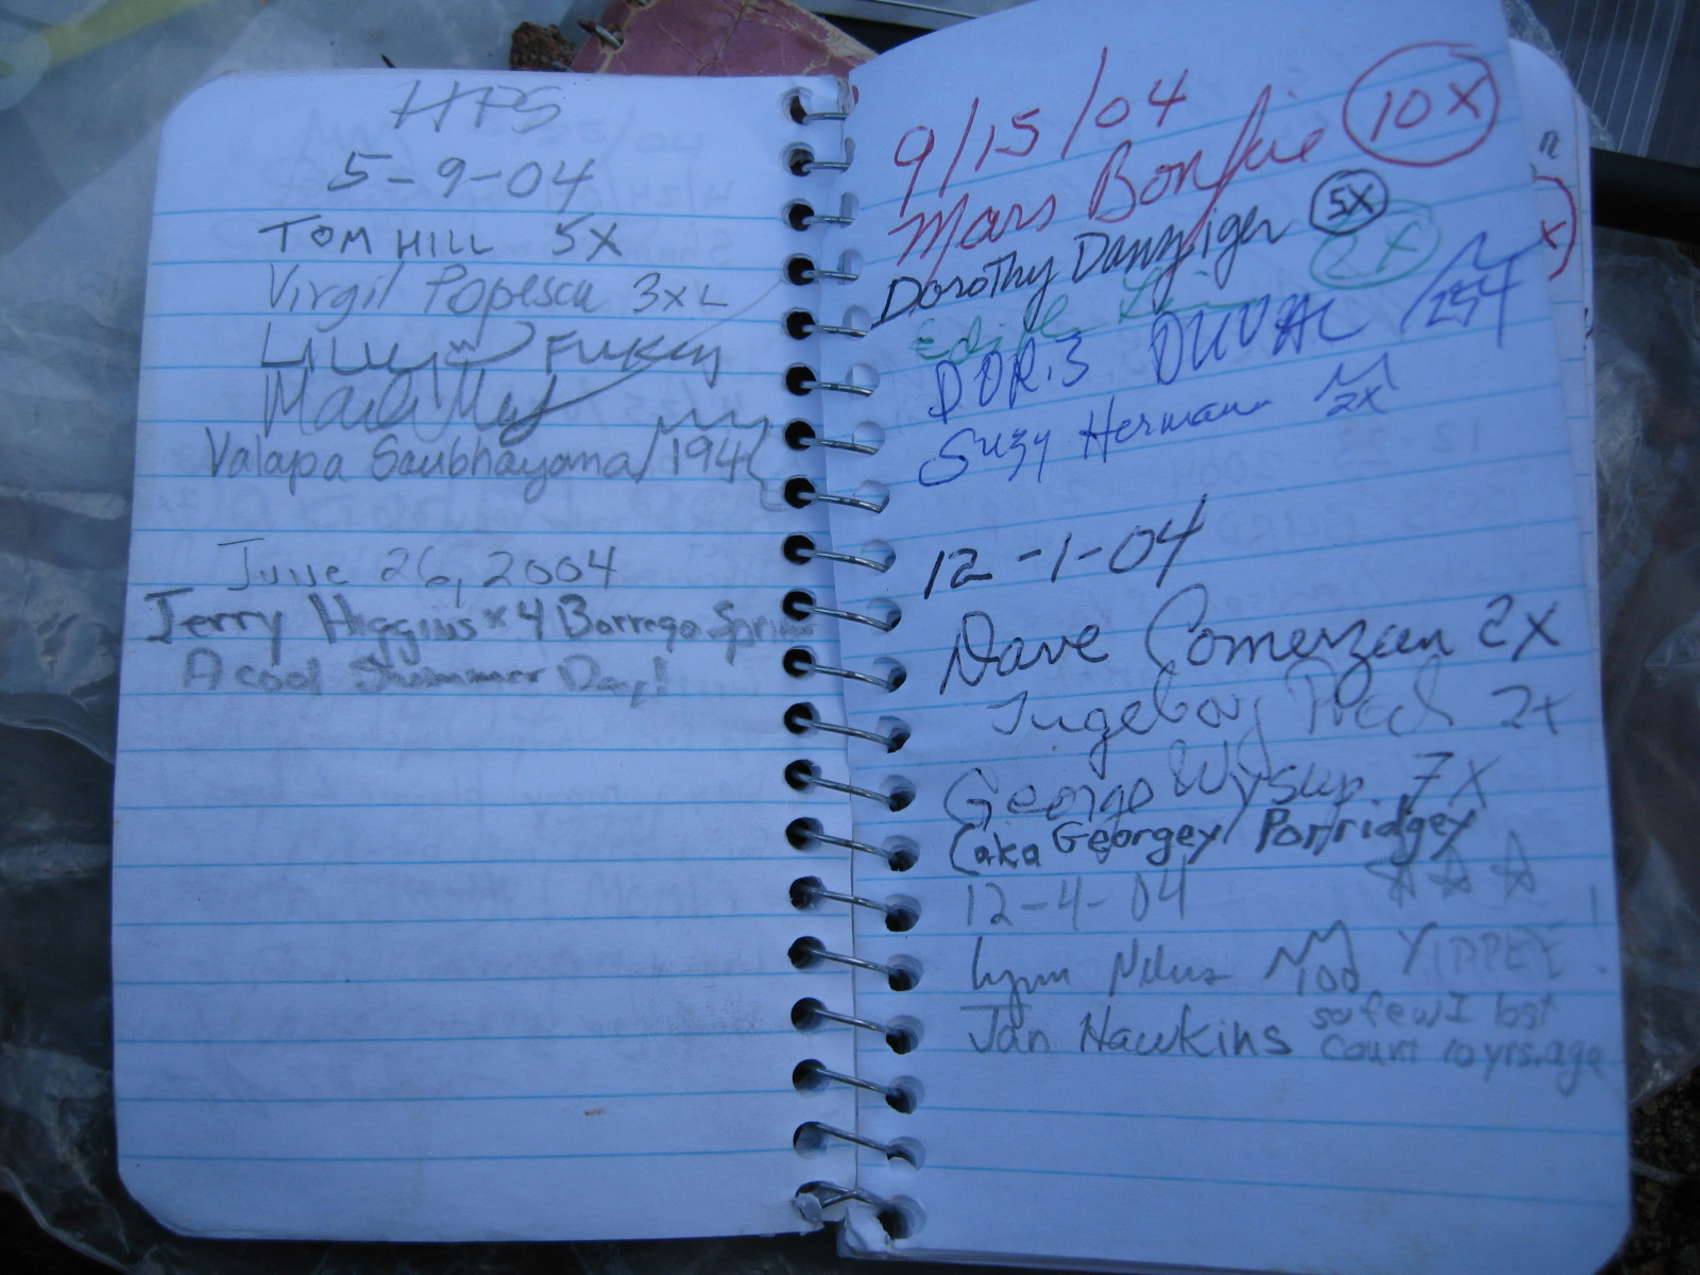 HPS
5-9-04
TOM HILL 5X
Virgil Popescu 3x L
Valapa Saubhayama/194
June 26, 2004
Jerry Higgins x 4 Borrego
A cool Summer Day!
9/15/04
Mars Bonfire 10X
Dorothy Danziger 5X
2X
DORIS DUVAL 254
Suzy Herman 2X
12-1-04
Dave Comerzan 2X
Ingeborg 2x
George Wysup 7X
(aka Georgey Porridgey
12-4-04
Lynn 100 YIPPEE!
Jan Hawkins so few I lost
count 10 yrs. ago